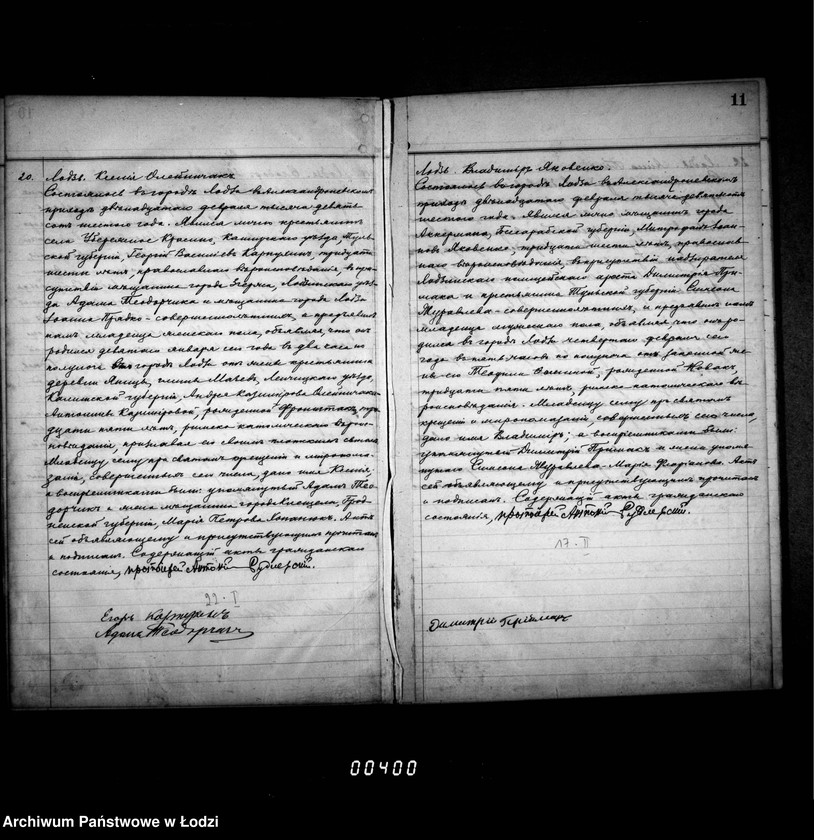 20. Лодзь. Ксенія Олейничакъ
Состоялось въ городѣ Лодзи въ Александроневскомъ
приходѣ двѣнадцатаго февраля тысяча девять
сотъ шестого года. Явился лично крестьянинъ
села Красно, уѣзда, Туль
ской губерніи, Георгій Васильевъ тридцати
шести лѣтъ, православнаго вѣроисповѣданія, въ при
сутствіи мѣщанина города Згержа, Лодзинскаго уѣз
да Адама Теодорчика и мѣщанина города Лодзи
Іоанна совершеннолѣтнихъ, и предъявилъ
намъ младенца женскаго пола, объявляя, что онъ
родился девятаго января сего года въ два часа по
полуночи въ городѣ Лодзи отъ жены крестьянина
деревни гмины Ленчицкаго уѣзда,
Калишской губерніи, Андрея Казимірова Олейничака
Антонины Казиміровой, рожденной три
дцати пяти лѣтъ, римско католическаго вѣро
исповѣданія, признавая его своимъ
Младенцу сему при святомъ крещеніи и миропома
заніи, совершенныхъ сего числа, дано имя Ксенія,
а воспріемниками были: упомянутый Адамъ Тео
дорчикъ и жена мѣщанина города Клещеля, Грод
ненской губерніи, Марія Петрова Актъ
сей объявляющему и присутствующимъ прочитанъ
и подписанъ. Содержащій акты гражданскаго
состоянія, протоіерей Антоній Рудлевскій.
22. I
Егоръ
Адамъ Теодорчикъ
11
Лодзь. Владиміръ Яковенко.
Состоялось въ городѣ Лодзи въ Александроневскомъ
приходѣ двѣнадцатаго февраля тысяча девятьсотъ
шестого года. Явился лично мѣщанинъ города
Аккермана, Бесарабской губерніи, Митрофанъ Іоан
новъ Яковенко, тридцати шести лѣтъ, православ
наго вѣроисповѣданія, въ присутствіи надзирателя
Лодзинскаго полицейскаго ареста Димитрія При
мака и крестьянина Тульской губерніи Симеона
Журавлева - совершеннолѣтнихъ, и предъявилъ намъ
младенца мужескаго пола, объявляя, что онъ ро
дился въ городѣ Лодзи четвертаго февраля сего
года въ пять часовъ по полуночи отъ законной же
ны его Теофили рожденной Новакъ,
тридцати пяти лѣтъ, римско католическаго вѣ
роисповѣданія. Младенцу сему при святомъ
крещеніи и миропомазаніи, совершенныхъ сего числа,
дано имя Владиміръ; а воспріемниками были:
упомянутый Димитрій Примакъ и жена упомя
нутаго Симеона Журавлева - Марія Актъ
сей объявляющему и присутствующимъ прочитанъ
и подписанъ. Содержащій акты гражданскаго
состоянія, протоіерей Антоній Рудлевскій.
17. II
Димитрій Примакъ
00400
Archiwum Państwowe w Łodzi